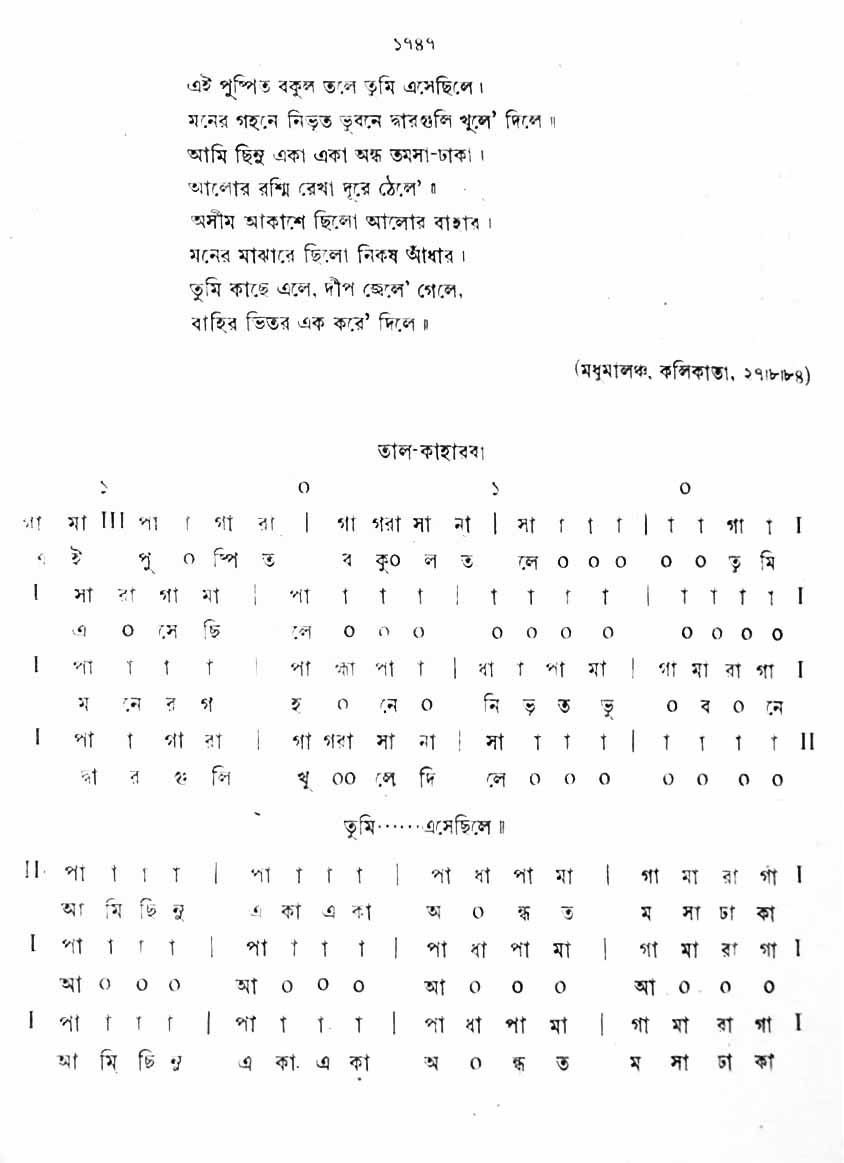 ১৭৪৭
এই পুষ্পিত বকুল তলে তুমি এসেছিলে।
মনের গহনে নিভৃত ভুবনে দ্বারগুলি খুলে' দিলে॥
আমি ছিনু একা একা অন্ধ তমসা-ঢাকা।
আলোর রশ্মি রেখা দূরে ঠেলে'॥
অসীম আকাশে ছিলো আলোর বাহার।
মনের মাঝারে ছিলো নিকষ আঁধার।
তুমি কাছে এলে, দীপ জ্বেলে' গেলে,
বাহির ভিতর এক করে' দিলে॥
(মধুমালঞ্চ, কলিকাতা, ২৭।৮।৮৪)
তাল-কাহারবা
১ ০ ১ ০
গা মা III পা া গা রা | গা গরা সা না | সা া া া | া া গা া I
এ ই পু ০ ষ্পি ত ব কু০ ল ত লে ০ ০ ০ ০ ০ তু মি
I সা রা গা মা | পা া া া | া া া া | া া া া I
এ ০ সেছি লে ০ ০ ০ ০ ০ ০ ০ ০ ০ ০ ০
I পা া া া | পা হ্মা পা া | ধা া পা মা | গা মা রা গা I
ম নে র গ হ ০ নে ০ নি ভৃ ত ভু ০ ব ০ নে
I পা া গা রা | গা গরা সা না | সা া া া | া া া া II
দ্বা র গু লি খু ০০ লে দি লে ০ ০ ০ ০ ০ ০ ০
তুমি······এসেছিলে॥
II পা া া া | পা া া া | পা ধা পা মা | গা মা রা গা I
আ মি ছি নু এ কা এ কা অ ০ ন্ধ ত ম সা ঢা কা
I পা া া া | পা া া া | পা ধা পা মা | গা মা রা গা I
আ ০ ০ ০ আ ০ ০ ০ আ ০ ০ ০ আ ০ ০ ০
I পা া া া | পা া া া | পা ধা পা মা | গা মা রা গা I
আ মি ছি নু এ কা এ কা অ ০ ন্ধ ত ম সা ঢা কা